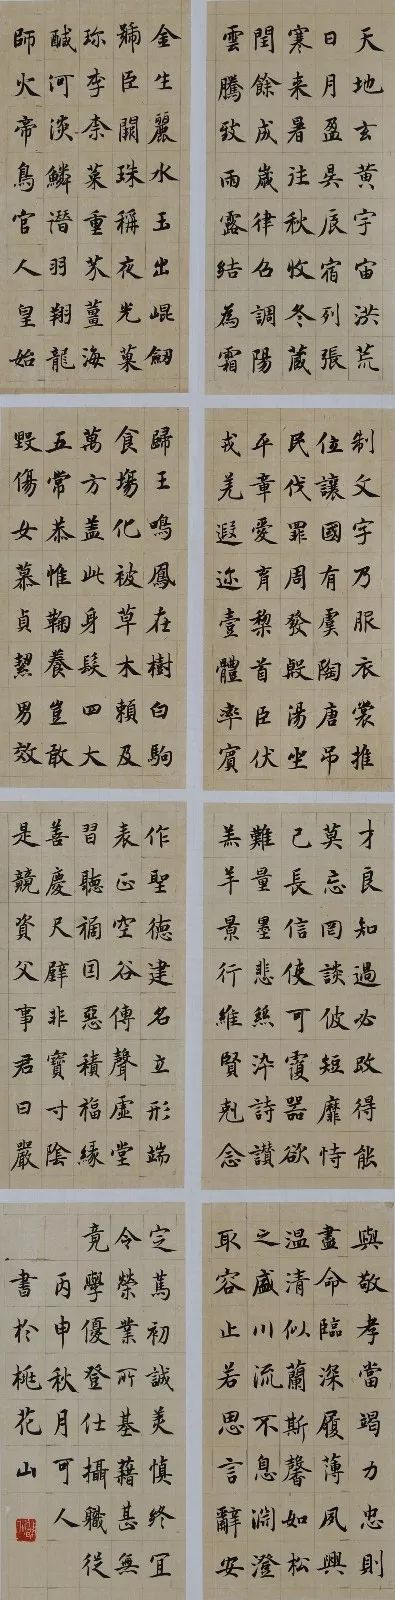 天地玄黃宇宙洪荒
日月盈昃辰宿列張
寒来暑往秋收冬蔵
閏餘成嵗律吕調陽
雲騰致雨露結為霜
金生麗水玉出崐劒
號臣闕珠稱夜光菓
珍李柰菜重芥薑海
醎河淡鱗潛羽翔龍
師火帝鳥官人皇始
制文字乃服衣裳推
位讓國有虞陶唐吊
民伐罪周發殷湯坐
平章愛育黎首臣伏
戎羌遐迩壹體率賓
歸王鳴鳳在樹白駒
食場化被草木賴及
萬方盖此身髮四大
五常恭惟鞠養豈敢
毀傷女慕貞絜男效
才良知過必改得能
莫忘罔談彼短靡恃
己長信使可覆器欲
難量墨悲絲染詩讃
羔羊景行維賢剋念
作聖德建名立形端
表正空谷傳聲虛堂
習聽禍因惡積福緣
善慶尺璧非寶寸陰
是競資父事君曰嚴
與敬孝當竭力忠則
盡命臨深履薄夙興
温清似蘭斯馨如松
之盛川流不息淵澄
取容止若思言辭安
定篤初誠美慎終宜
令榮業所基藉甚無
竟學優登仕攝職從
丙申秋月可人
書於桃花山